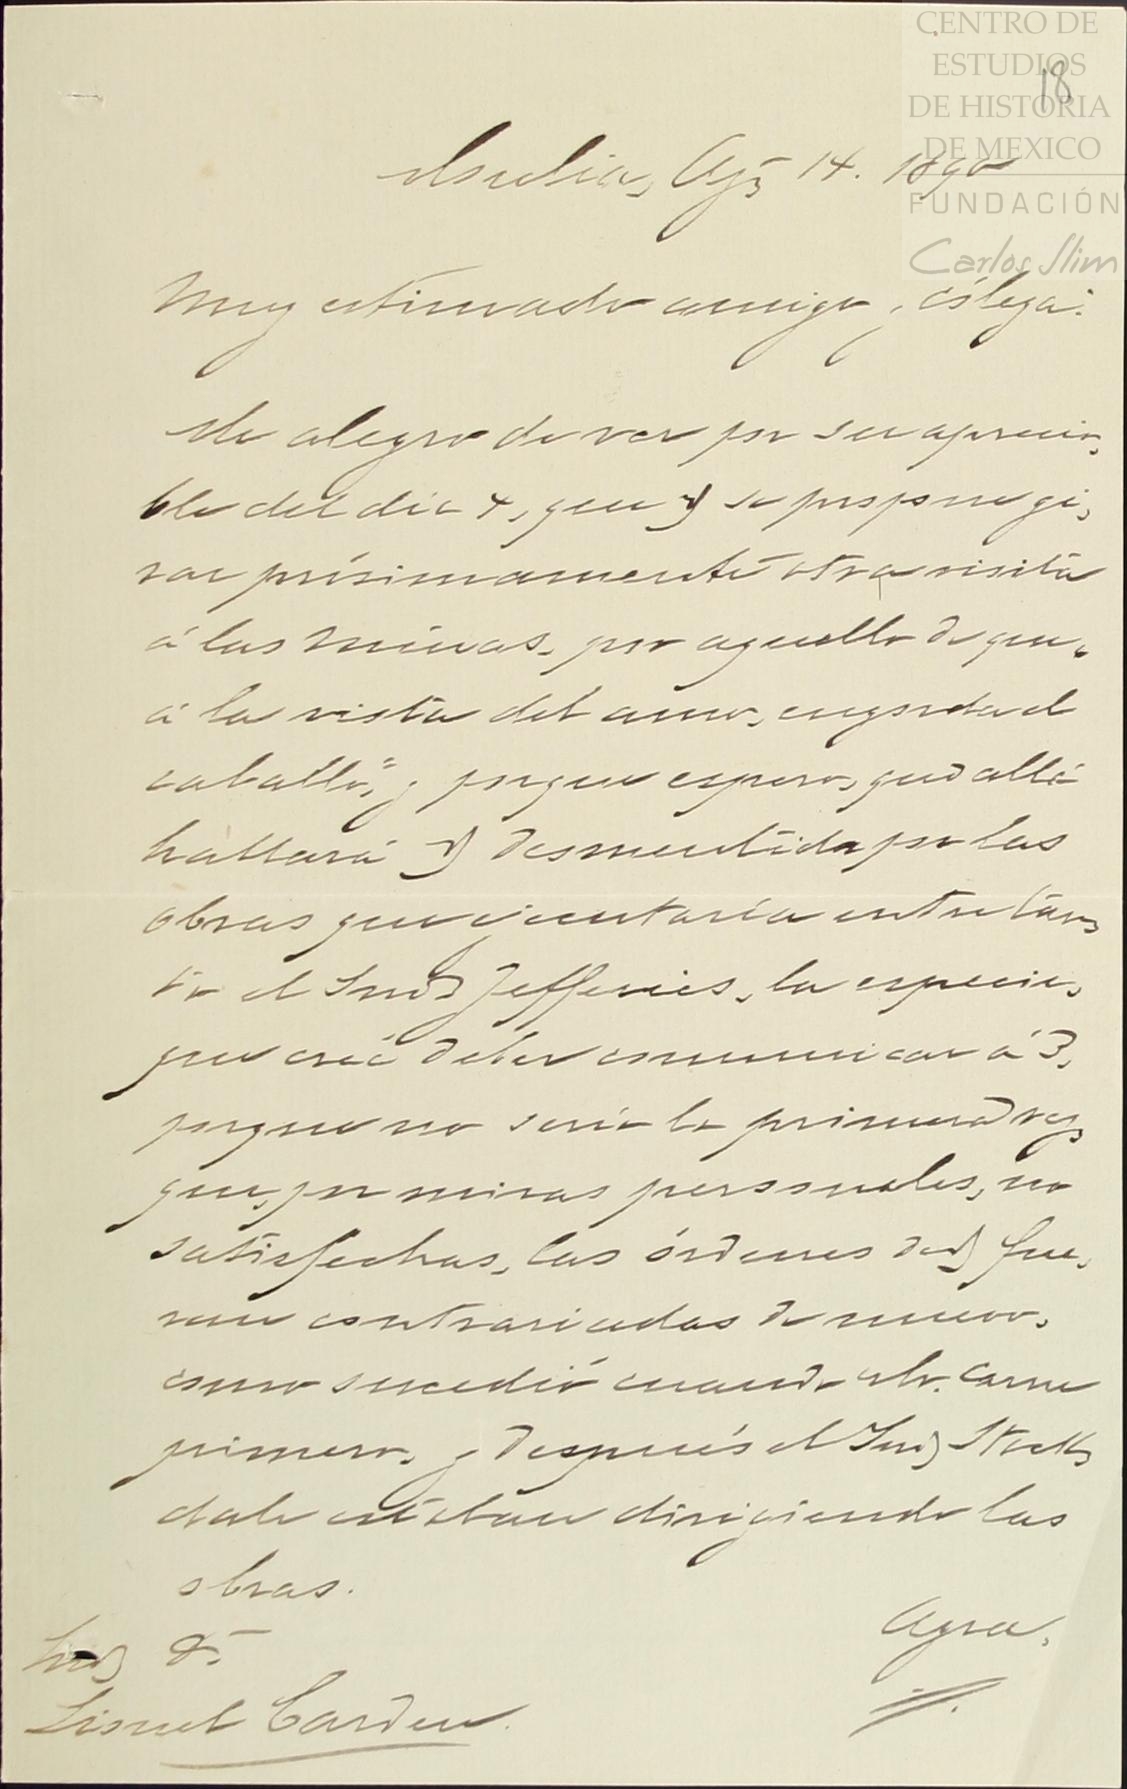 CENTRO DE
ESTUDIOS
DE HISTORIA
DE MEXICO
FUNDACIÓN
Carlos Slim
18
Agto 14. 1890
Muy estimado amigo y cólega:
Me alegro de ver por su aprecia-
ble del dia 4, que V se propone gi-
rar prósimamente otra visita
á las minas, por aquello de que "
á la vista del amo, engorda el
caballo," y porque espero, que allá
hallará V desmentida por las
obras que ejecutaría entre tan-
to el Smd Jefferies, la especie,
que creí deber comunicar á V,
porque no sería la primera vez
que, por miras personales, no
satisfechas, las órdenes de V fue-
ran contrariadas de nuevo,
como sucedió cuando Mr. Carne
primero, y después el Smd Stock-
dale estaban dirigiendo las
obras.
Agra-
Sr D.
Lionel Carden.